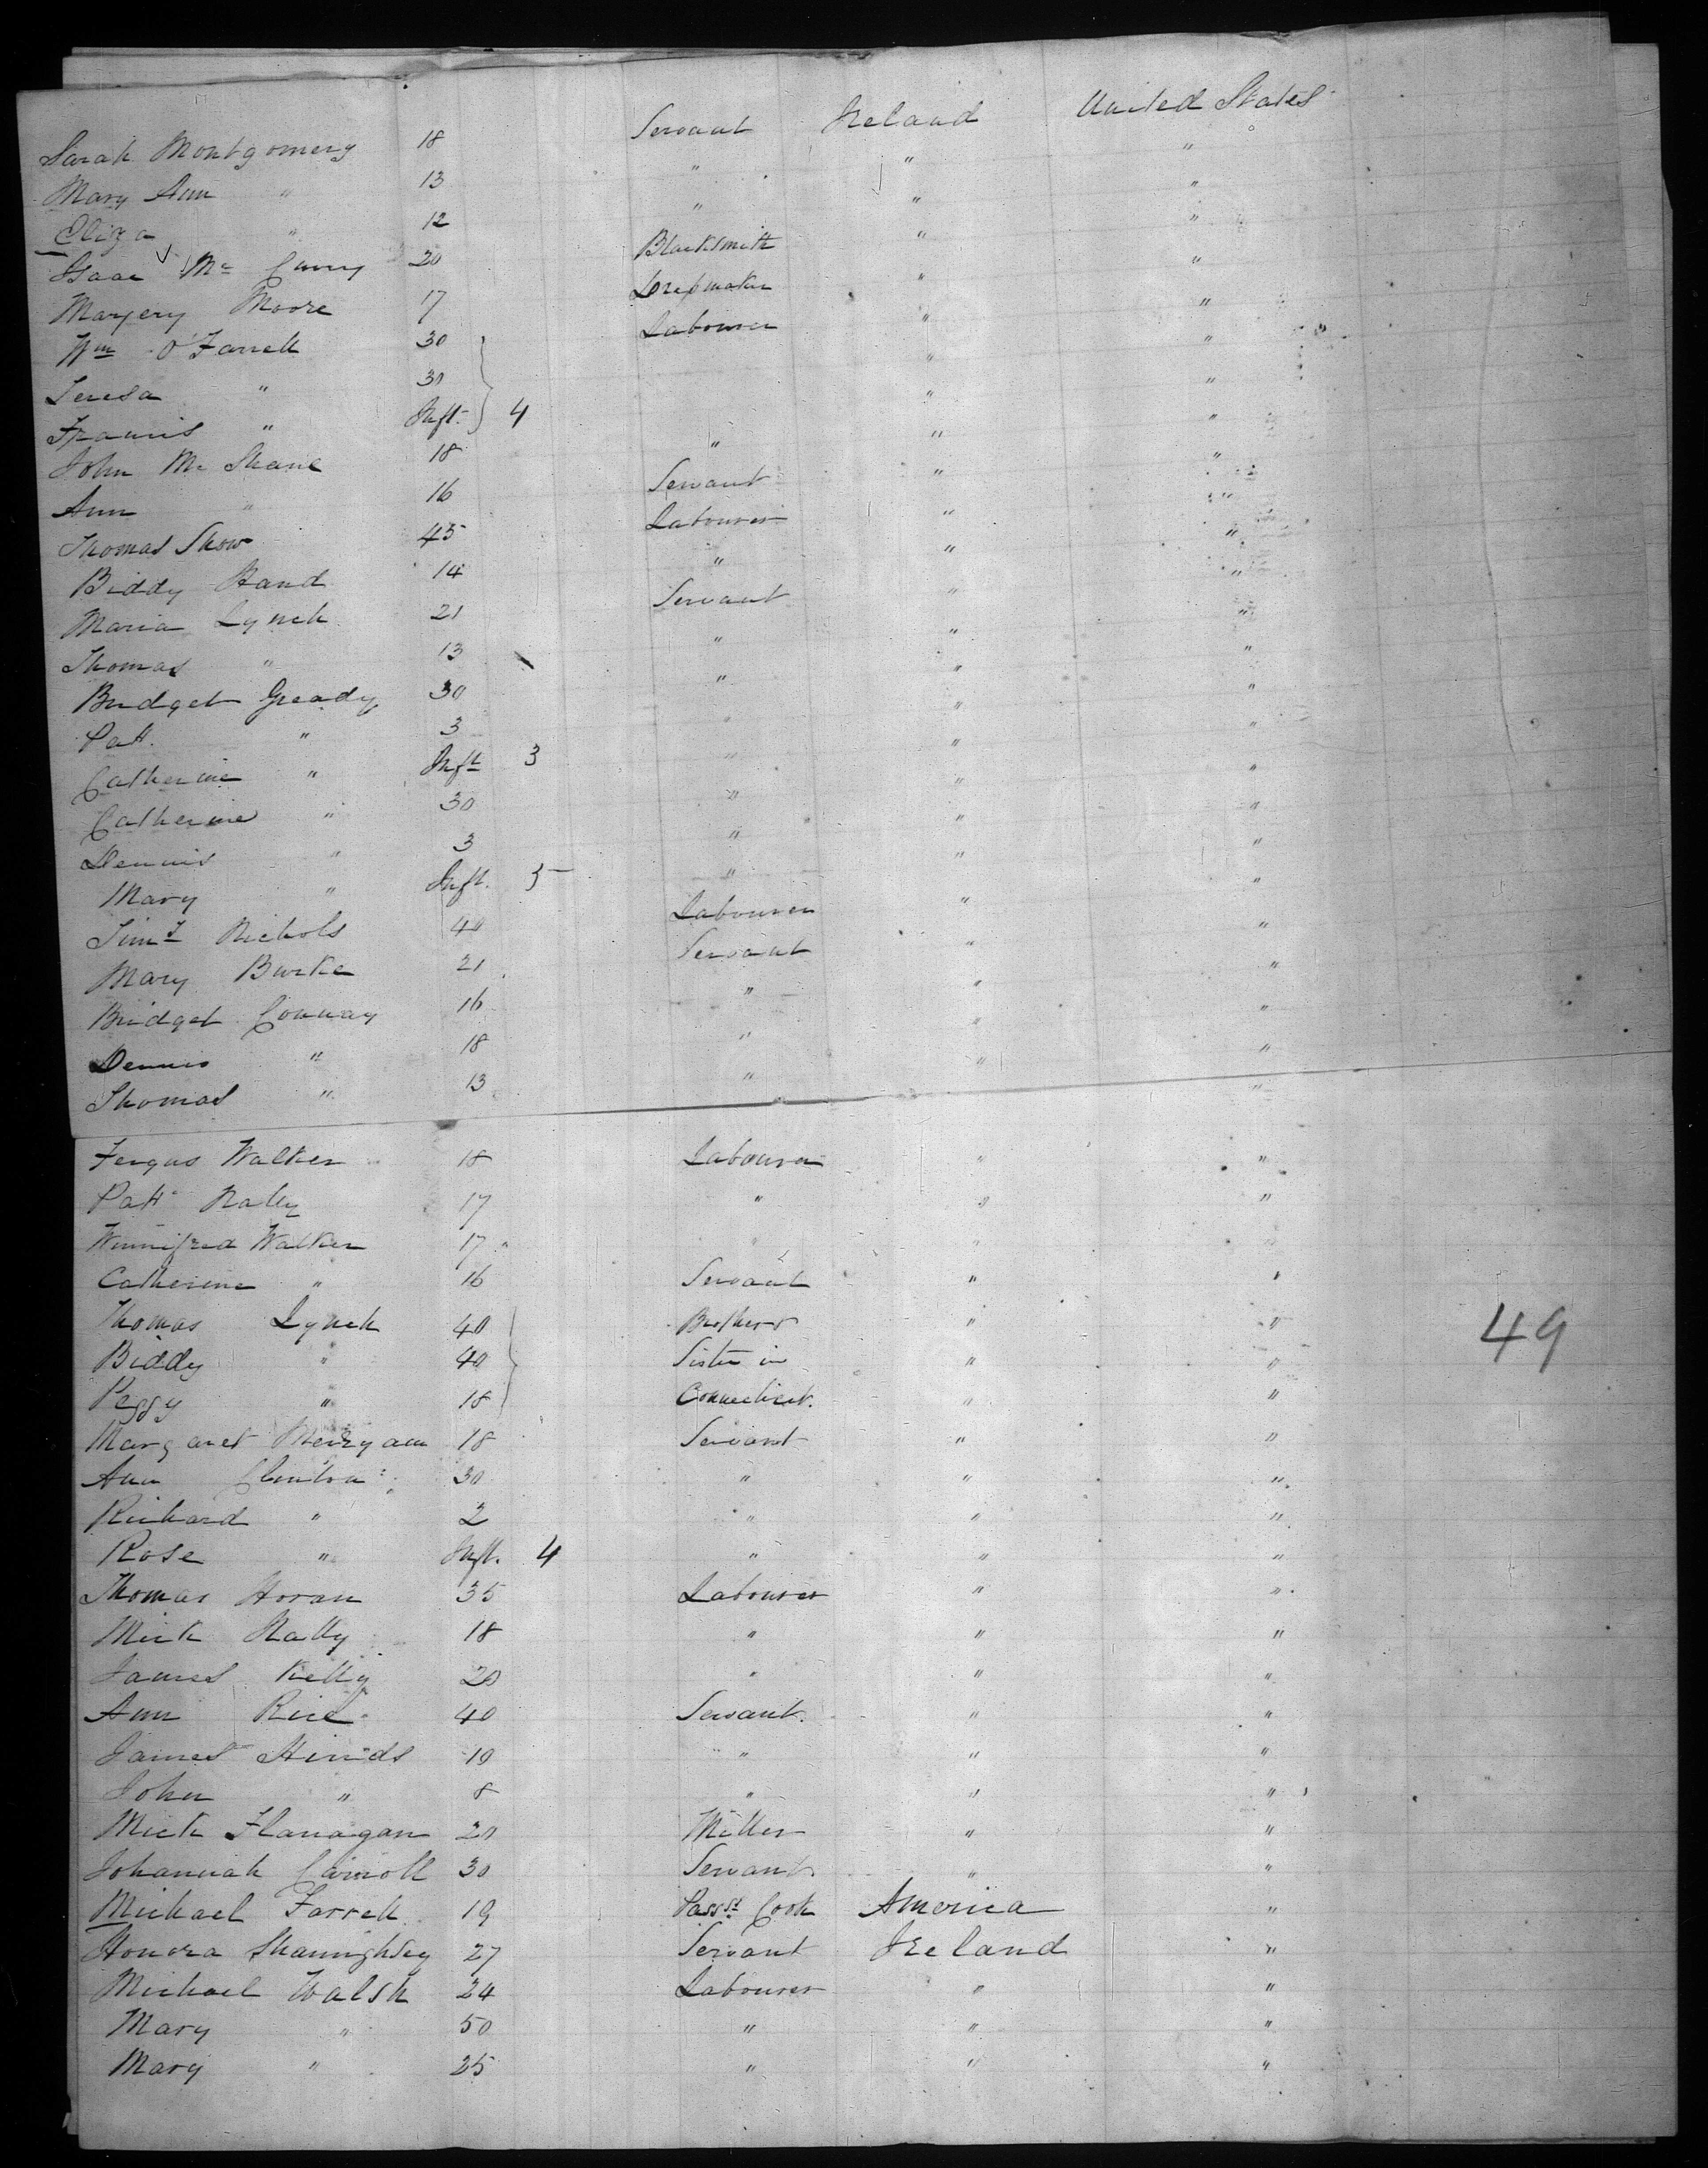 Sarah Montgomery 18 Servant Ireland United States
Mary Ann " 13 " " "
Eliza " 12 " " "
Isaac Mc Curry 20 Blacksmith " "
Margery Moore 17 Dressmaker " "
Wm O'Farrell 30 Labourer " "
Teresa " 30 " "
Francis " Inft. 4 " "
John Mc Shane 18 " " "
Ann " 16 Servant " "
Thomas Show 45 Labourer " "
Biddy Hand 14 " " "
Maria Lynch 21 Servant " "
Thomas " 13 " " "
Bridget Gready 30 " " "
Patt. " 3 " " "
Catherine " Inft 3 " " "
Catherine " 30 " " "
Dennis " 3 " " "
Mary " Inft. 3 " " "
Timy Nichols 40 Labourer " "
Mary Burke 21 Servant " "
Bridget Conway 16 " " "
Dennis " 18 " " "
Thomas " 13 " " "
Fergus Walker 18 Labourer " "
Patt Nally 17 " " "
Winnifred Walker 17 " " "
Catherine " 16 Servant " "
Thomas Lynch 40 Brothers " "
Biddy " 40 Sister in " "
Peggy " 18 Connecticut. " "
49
Margaret 18 Servant " "
Ann Clinton 30 " " "
Richard " 2 " " "
Rose " Inft. 4 " " "
Thomas Horan 35 Labourer " "
Mick Nally 18 " " "
James Kelly 20 " " "
Ann Rice 40 Servant. " "
James Hinds 10 " " "
John " 8 " " "
Mick Flanagan 20 Miller " "
Johannah Carroll 30 Servant " "
Michael Farrell 19 Passr. Cook America "
Honora Shaunighsey 27 Servant Ireland "
Michael Walsh 24 Labourer " "
Mary " 50 " " "
Mary " 25 " " "